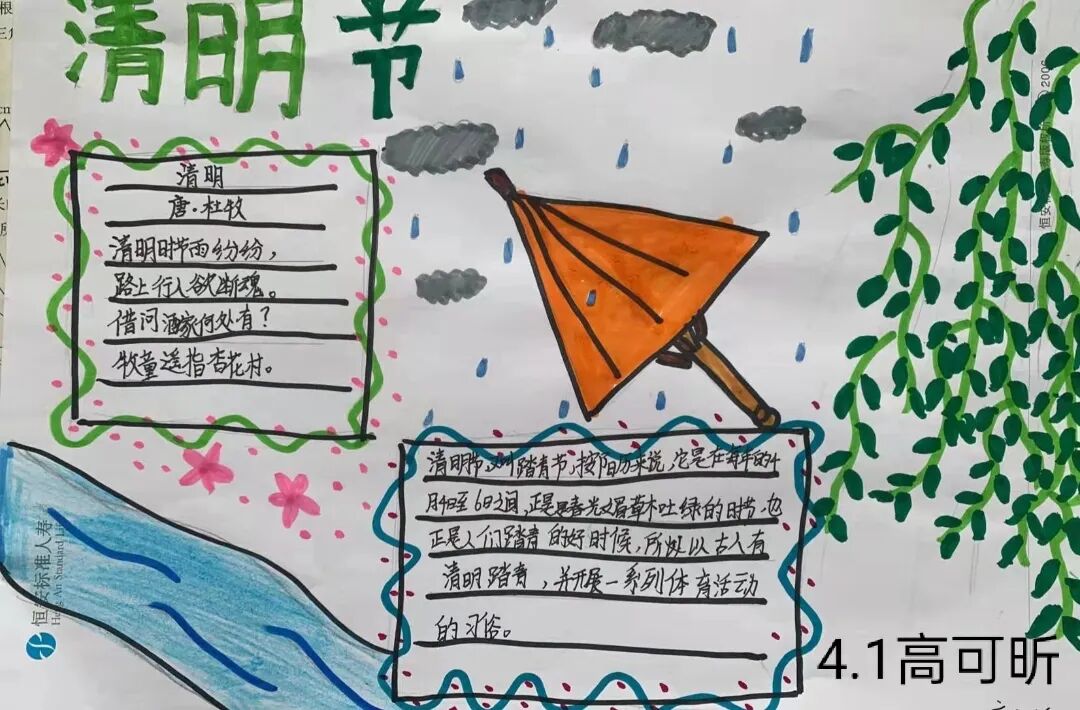 清明节
清明
唐·杜牧
清明时节雨纷纷，
路上行人欲断魂。
借问酒家何处有？
牧童遥指杏花村。
清明节，又叫踏青节，按阳历来说，它是在每年的4
月4日至6日之间，正是春光明媚草木吐绿的时节，也
正是人们踏青的好时候，所以以古人有
清明踏青，并开展一系列体育活动
的习俗。
恒安标准人寿
Heng An Standard Life
2006
4.1高可昕